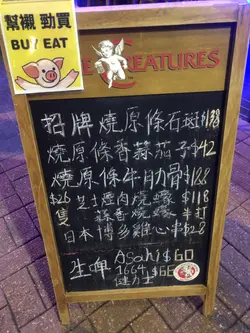 幫襯 勁買
BUY EAT
E CREATURES
招牌燒原條石斑$138
燒原條香蒜茄子$42
燒原條牛肋骨$188
$26 芝士煙肉燒蠔 $118
隻 蒜香燒蠔 半打
日本博多雞心串$28
生啤 Asahi $60
1664 $68
健力士